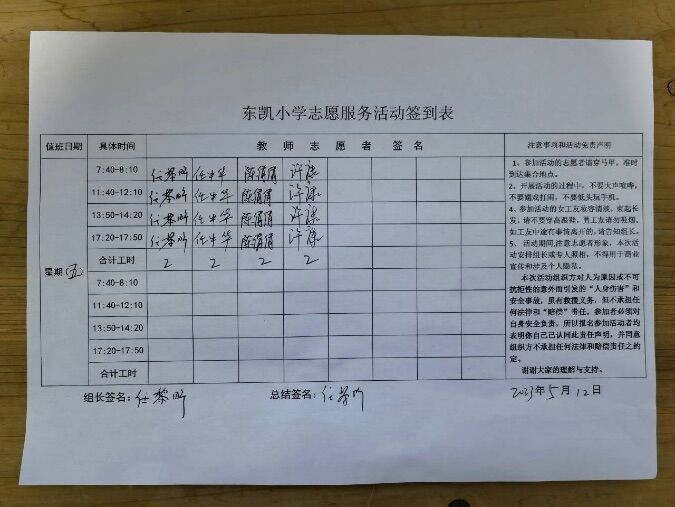 东凯小学志愿服务活动签到表
值班日期 具体时间 教师志愿者签名 注意事项和活动免责声明
7:40-8:10 任黎昕 任少华 陈娟娟
11:40-12:10 任黎昕 任少华 陈娟娟
13:50-14:20 任黎昕 任少华 陈娟娟
17:20-17:50 任黎昕 任少华 陈娟娟
星期(五)
合计工时 2 2 2 2
7:40-8:10
11:40-12:10
13:50-14:20
17:20-17:50
合计工时
1、参加活动的志愿者请穿马甲，准时
到达集合地点。
2、开展活动的过程中，不要大声喧哗，
不要嬉戏打闹，不要低头玩手机。
3、参加活动的女工友妆容清淡，束起长
发；请不要穿高跟鞋，男工友请勿吸烟。
4、如工友中途有事需离开的，请告知组长。
5、活动期间,注意志愿者形象，本次活
动安排组长或专人照相，不得用于商业
宣传和涉及个人隐私。
本次活动组织方对人为原因或不可
抗拒性的意外而引发的“人身伤害”和
安全事故，虽有救援义务，但不承担任
何法律和“赔偿”责任。参加者必须对
自身安全负责，所以报名参加活动者均
表明你自己已认同此责任声明，并同意
组织方不承担任何法律和赔偿责任之约
定。
谢谢大家的理解与支持。
组长签名：任黎昕 总结签名：任黎昕 2023年5月12日